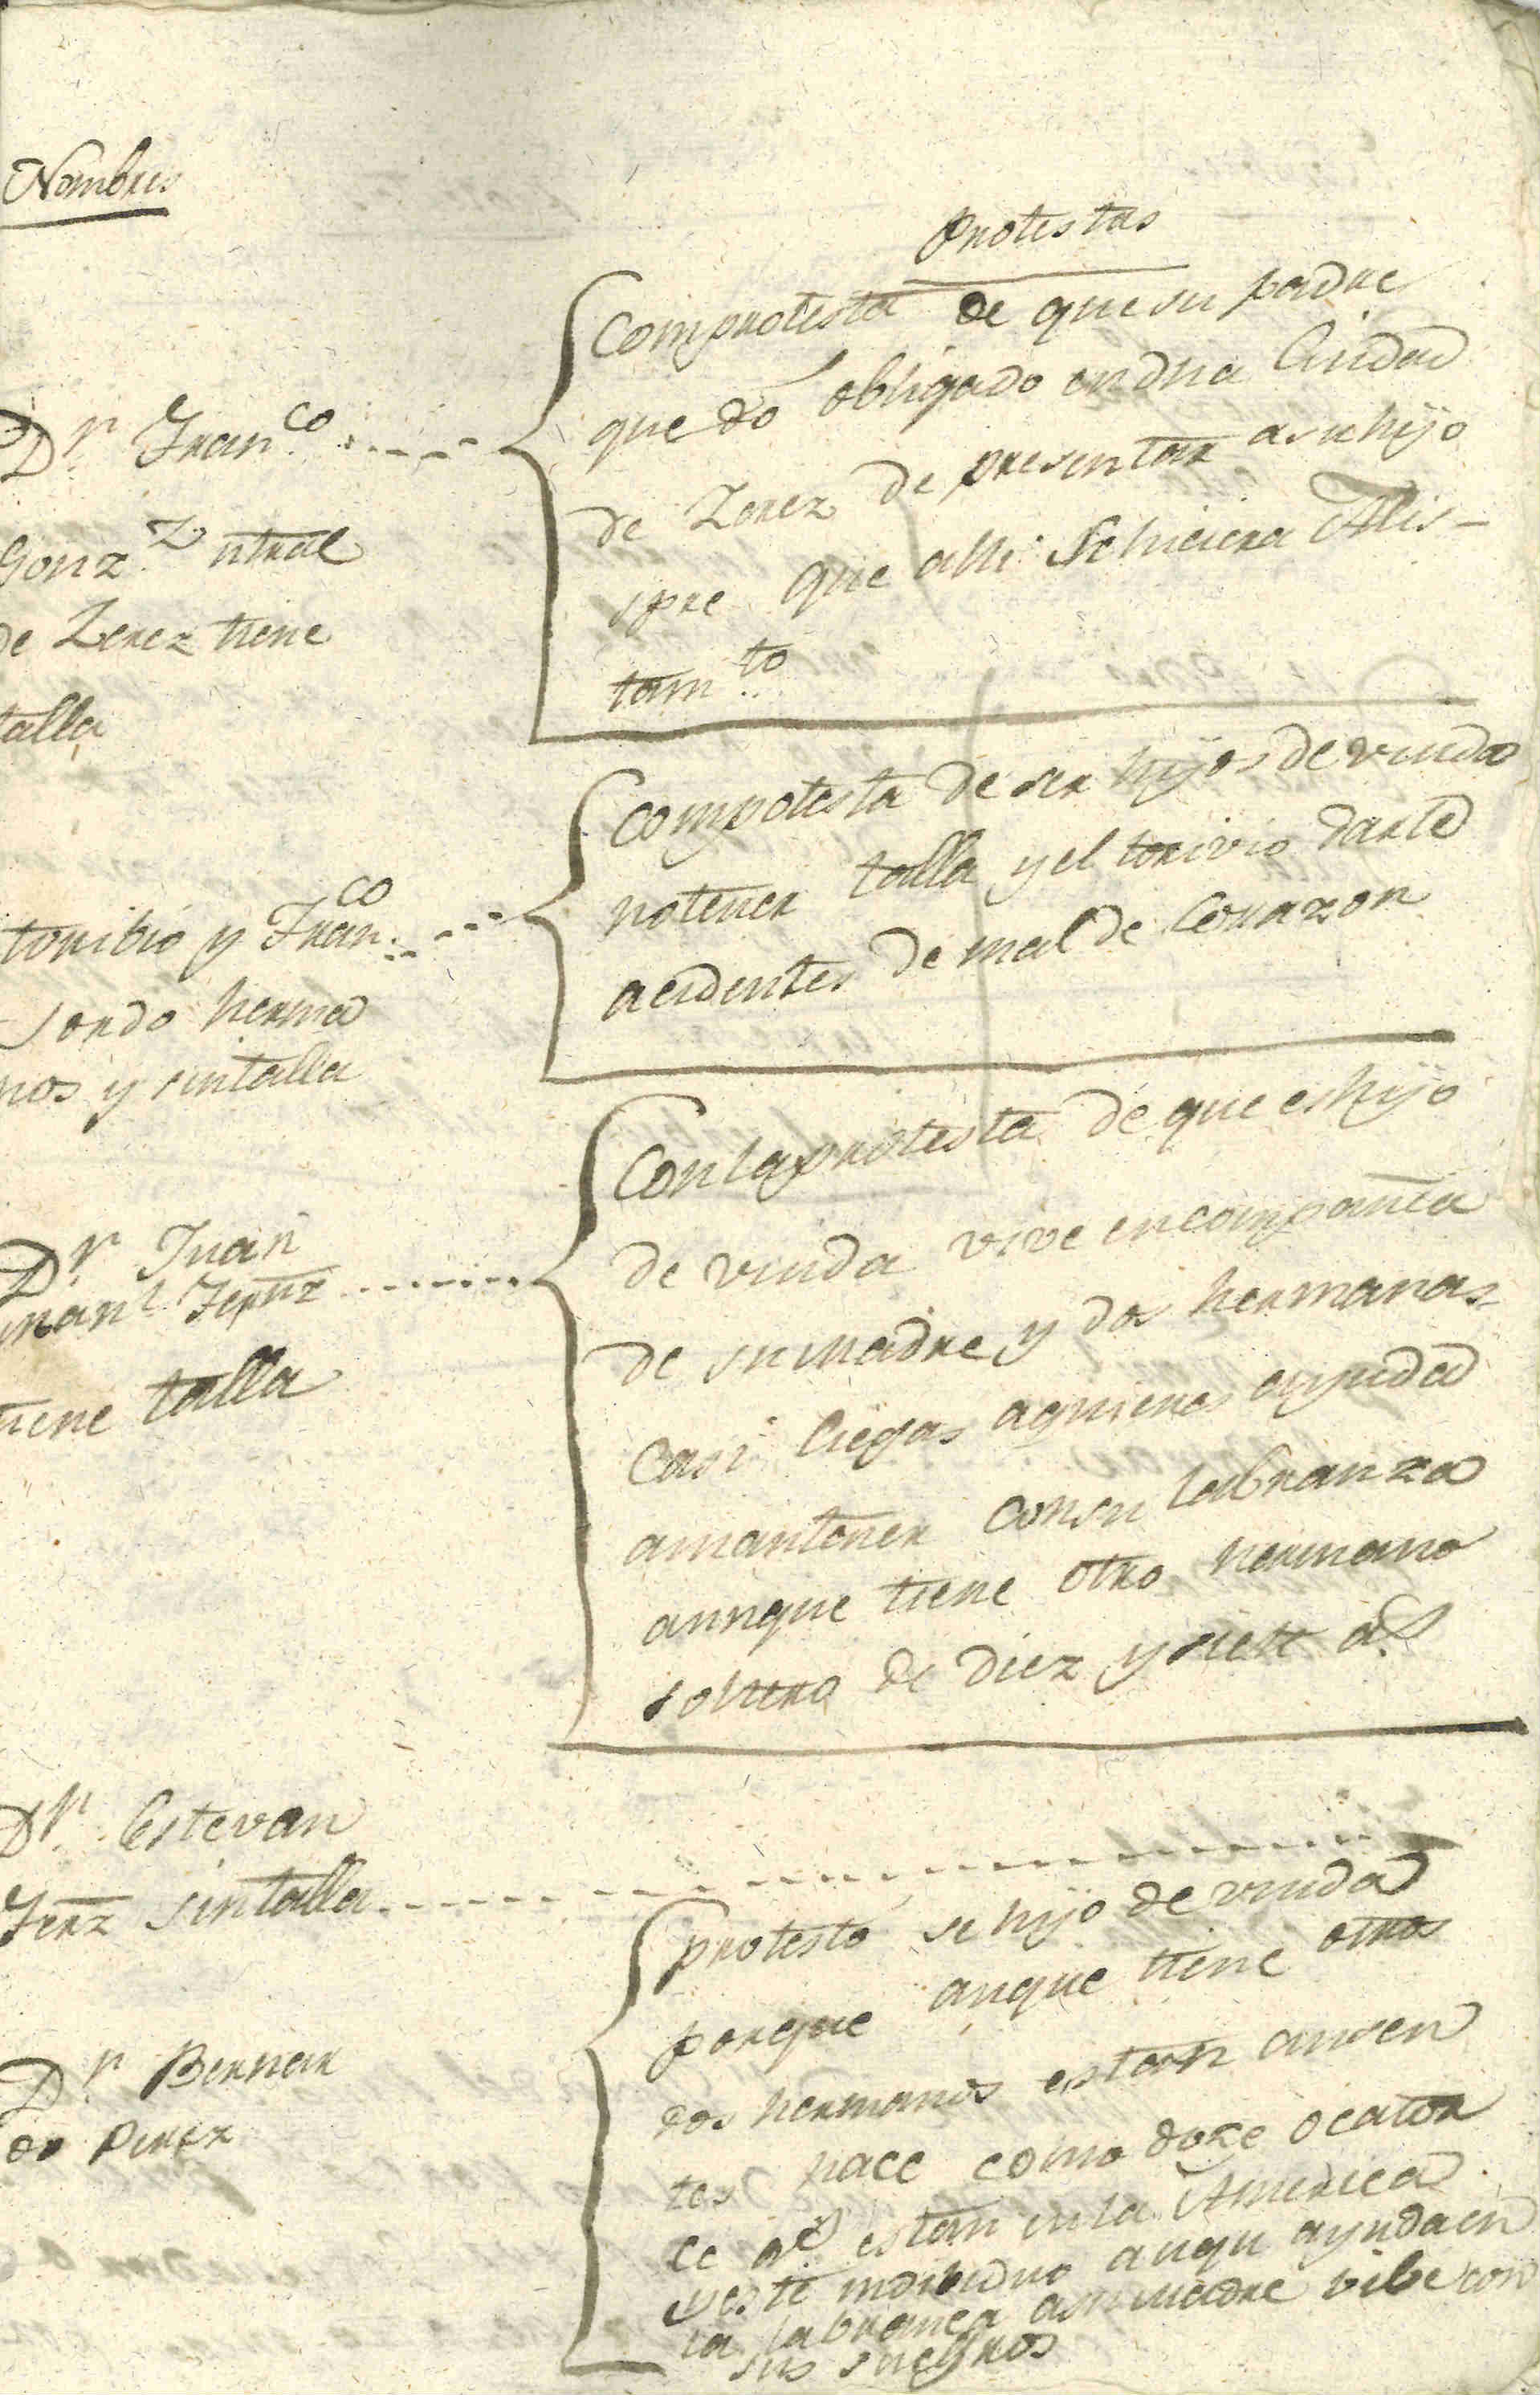 Nombres
Protestas
Dn. Franco.
Gonzz. ntral
de Zerez tiene
talla
Comprotesta de que su padre
que dó obligado en dha Ciudad
de Zerez de presentar asu hijo
spre que alli se hiciera Alis-
tamto.
toribio y Franco.
sordo herma
nos y sintalla
compotesta de ser hijos de viuda
notener talla y el torivio darle
acidentes de mal de Corazon
Dn. Juan
manl. Fernz
tiene talla
Conlaprotesta de que es hijo
de viuda vive encompañia
de su madre y dos hermanas
Casi Ciegas aquienes ayuda
amantener consu labranza
aunque tiene otro hermano
soltero de diez y siete as.
Dn. Estevan
Ferz sintalla
Dn. Bernar
do Perez
protestó se hijo de viuda
porque anque tiene otros
dos hermanos estan ausen
tes hace como doze o cator
ce as. estan en la America
y este indibiduo auqu ayuda en
la labranca asu madre vibe con
sus suegros